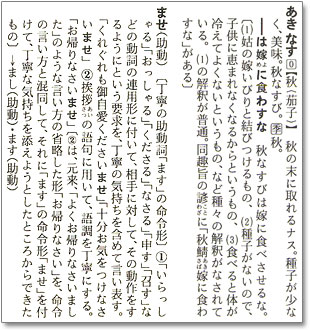 あきなす 0 【秋〈茄子〉】 秋の末に取れるナス。種子が少な
く、美味。秋なすび。季秋。
――は嫁に食わすな 秋なすびは嫁に食べさせるな。
〔(1)姑の嫁いびりと結びつけるもの、(2)種子がないので、
子供に恵まれなくなるからというもの、(3)食べると体が
冷えてよくないというもの、など種々の解釈がなされて
いる。(1)の解釈が普通。同趣旨の諺に「秋鯖は嫁に食わ
すな」がある〕
ませ(助動) 〔丁寧の助動詞「ます」の命令形〕①「いらっし
ゃる」「おっしゃる」「くださる」「なさる」「申す」「召す」な
どの動詞の連用形に付いて、相手に対して、その動作をす
るようにという要求を、丁寧の気持ちを含めて言い表す。
「くれぐれも御自愛くださいませ」「十分お気をつけなさ
いませ」 ②挨拶の語句に用いて、語調を丁寧にする。
「お帰りなさいませ」〔②は、元来、「よくお帰りなさいまし
た」のような言い方の省略した形「お帰りなさい」を、命令
の言い方と混同して、それに「ます」の命令形「ませ」を付
けて、丁寧な気持ちを添えようとしたところからできた
もの〕→まし(助動)・ます(助動)